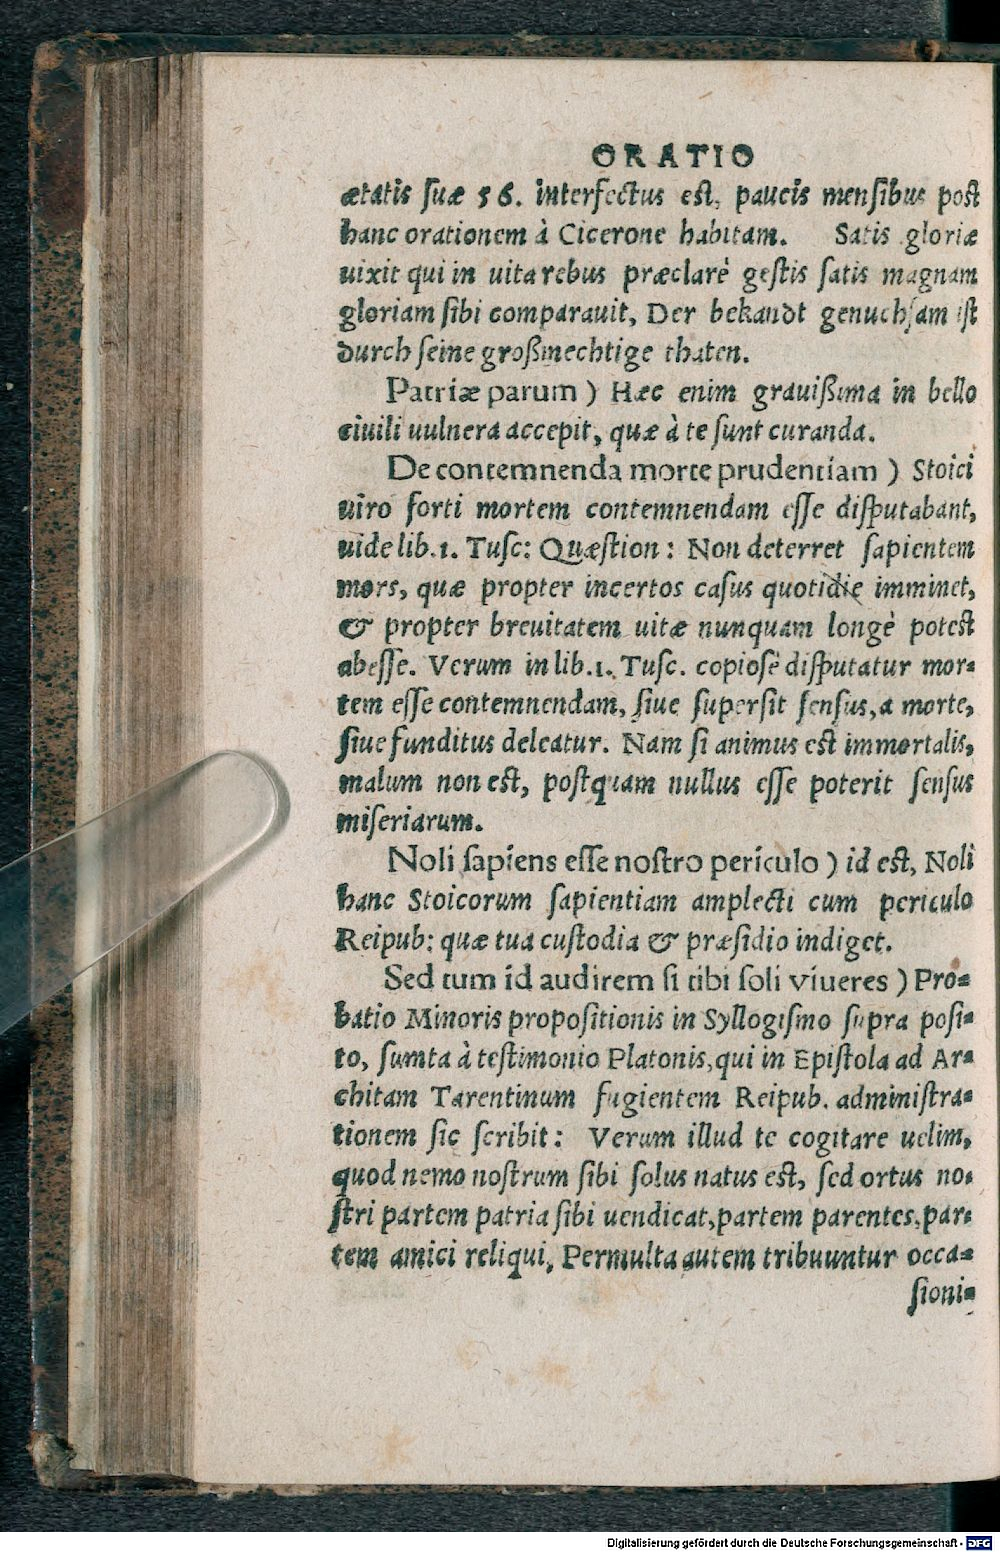 ORATIO
ætatis suæ 56. interfectus est, paucis mensibus post
hanc orationem à Cicerone habitam. Satis gloriæ
uixit qui in uita rebus præclarè gestis satis magnam
gloriam sibi comparauit, Der bekandt genuchsam ist
durch seine großmechtige thaten.
Patriæ parum ) Hæc enim grauißima in bello
ciuili uulnera accepit, quæ à te sunt curanda.
De contemnenda morte prudentiam ) Stoici
uiro forti mortem contemnendam esse disputabant,
uide lib.1. Tusc: Quæstion: Non deterret sapientem
mors, quæ propter incertos casus quotidie imminet,
& propter breuitatem uitæ nunquam longè potest
abesse. Verum in lib.1. Tusc. copiosè disputatur mor-
tem esse contemnendam, siue supersit sensus, a morte,
siue funditus deleatur. Nam si animus est immortalis,
malum non est, postquam nullus esse poterit sensus
miseriarum.
Noli sapiens esse nostro periculo ) id est, Noli
hanc Stoicorum sapientiam amplecti cum periculo
Reipub: quæ tua custodia & præsidio indiget.
Sed tum id audirem si tibi soli viueres ) Pro-
batio Minoris propositionis in Syllogismo supra posi-
to, sumta à testimonio Platonis, qui in Epistola ad Ar-
chitam Tarentinum fugientem Reipub. administra-
tionem sic scribit: Verum illud te cogitare uelim,
quod nemo nostrum sibi solus natus est, sed ortus no-
stri partem patria sibi uendicat, partem parentes, par-
tem amici reliqui, Permulta autem tribuuntur occa-
sioni-
Digitalisierung gefördert durch die Deutsche Forschungsgemeinschaft - DFG